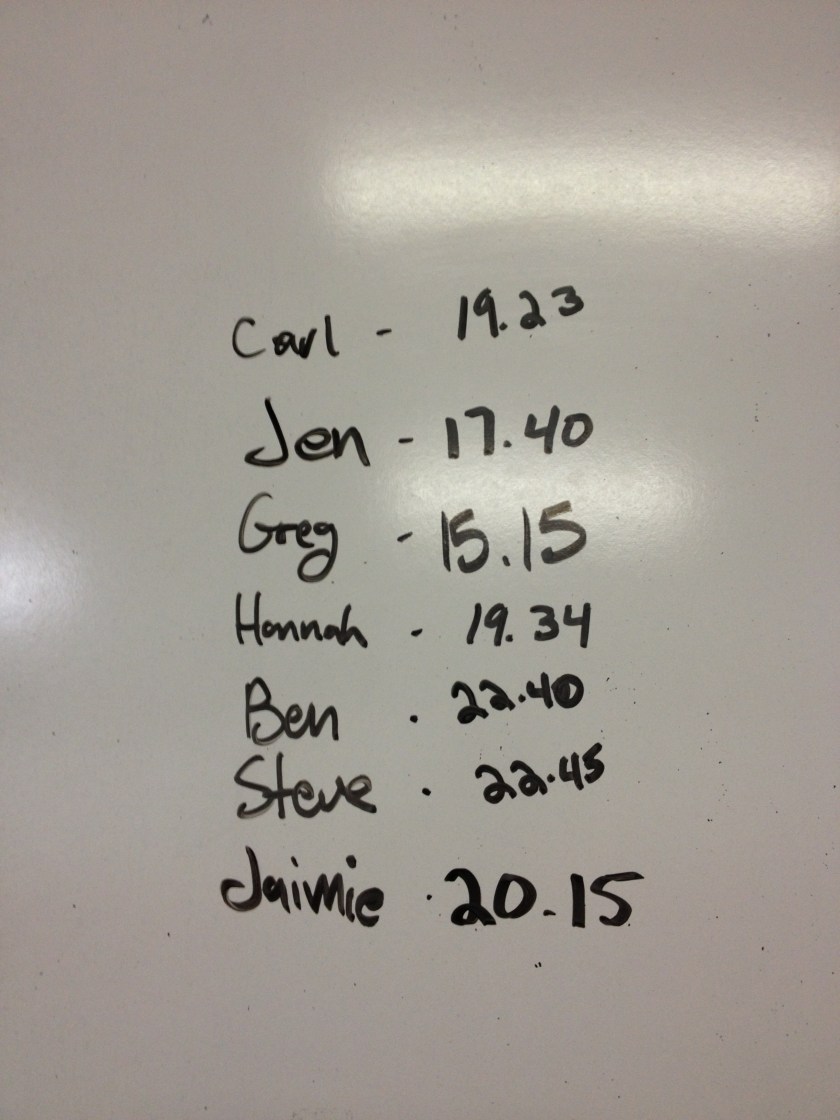 Carl - 19.23
Jen - 17.40
Greg - 15.15
Hannah - 19.34
Ben . 22.40
Steve . 22.45
Jaimie . 20.15